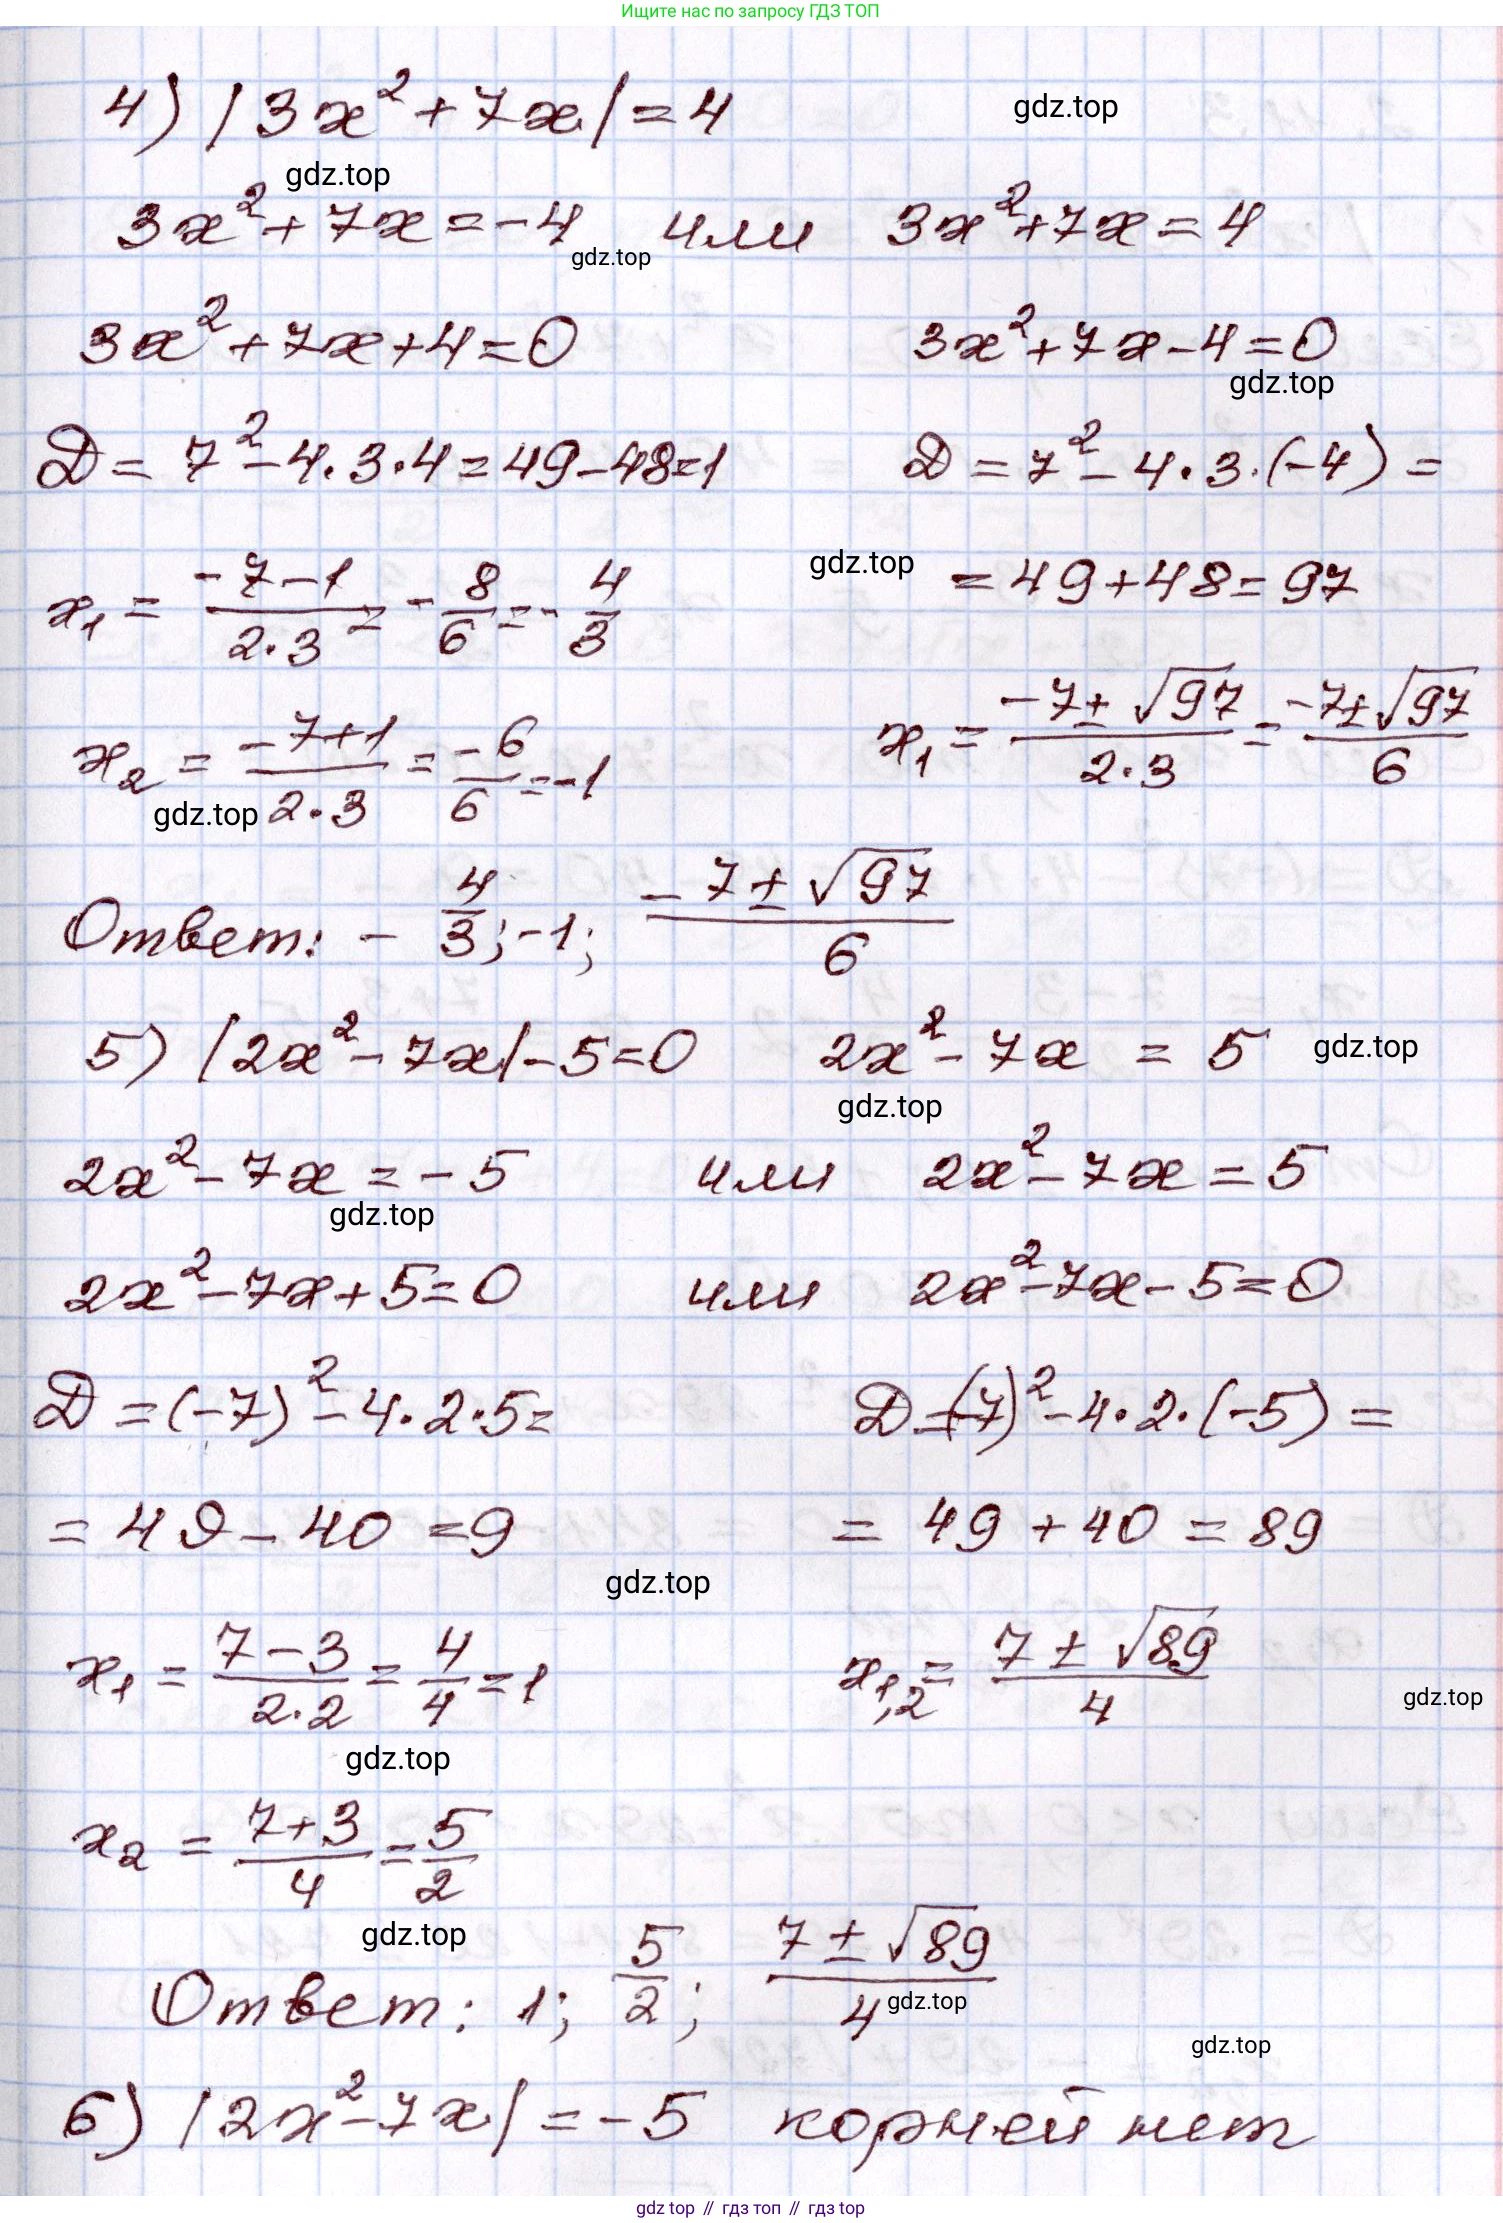 Ищите нас по запросу ГДЗ ТОП
4) |3x² + 7x| = 4
gdz.top
gdz.top
3x² + 7x = -4 или 3x² + 7x = 4
gdz.top
3x² + 7x + 4 = 0 3x² + 7x - 4 = 0
gdz.top
Д = 7² - 4·3·4 = 49 - 48 = 1 Д = 7² - 4·3·(-4) =
gdz.top = 49 + 48 = 97
x₁ = (-7-1)/(2·3) = -8/6 = -4/3
x₂ = (-7+1)/(2·3) = -6/6 = -1 x₁ = (-7±√97)/(2·3) = (-7±√97)/6
gdz.top
Ответ: -4/3; -1; (-7±√97)/6
5) |2x² - 7x| - 5 = 0 2x² - 7x = 5 gdz.top
gdz.top
2x² - 7x = -5 или 2x² - 7x = 5
gdz.top
2x² - 7x + 5 = 0 или 2x² - 7x - 5 = 0
Д = (-7)² - 4·2·5 = Д = (-7)² - 4·2·(-5) =
= 49 - 40 = 9 = 49 + 40 = 89
gdz.top
x₁ = (7-3)/(2·2) = 4/4 = 1 x₁,₂ = (7±√89)/4
gdz.top
gdz.top
x₂ = (7+3)/4 = 5/2
gdz.top
Ответ: 1; 5/2; (7±√89)/4
gdz.top
gdz.top
6) |2x² - 7x| = -5 корней нет
gdz top // гдз топ // гдз top